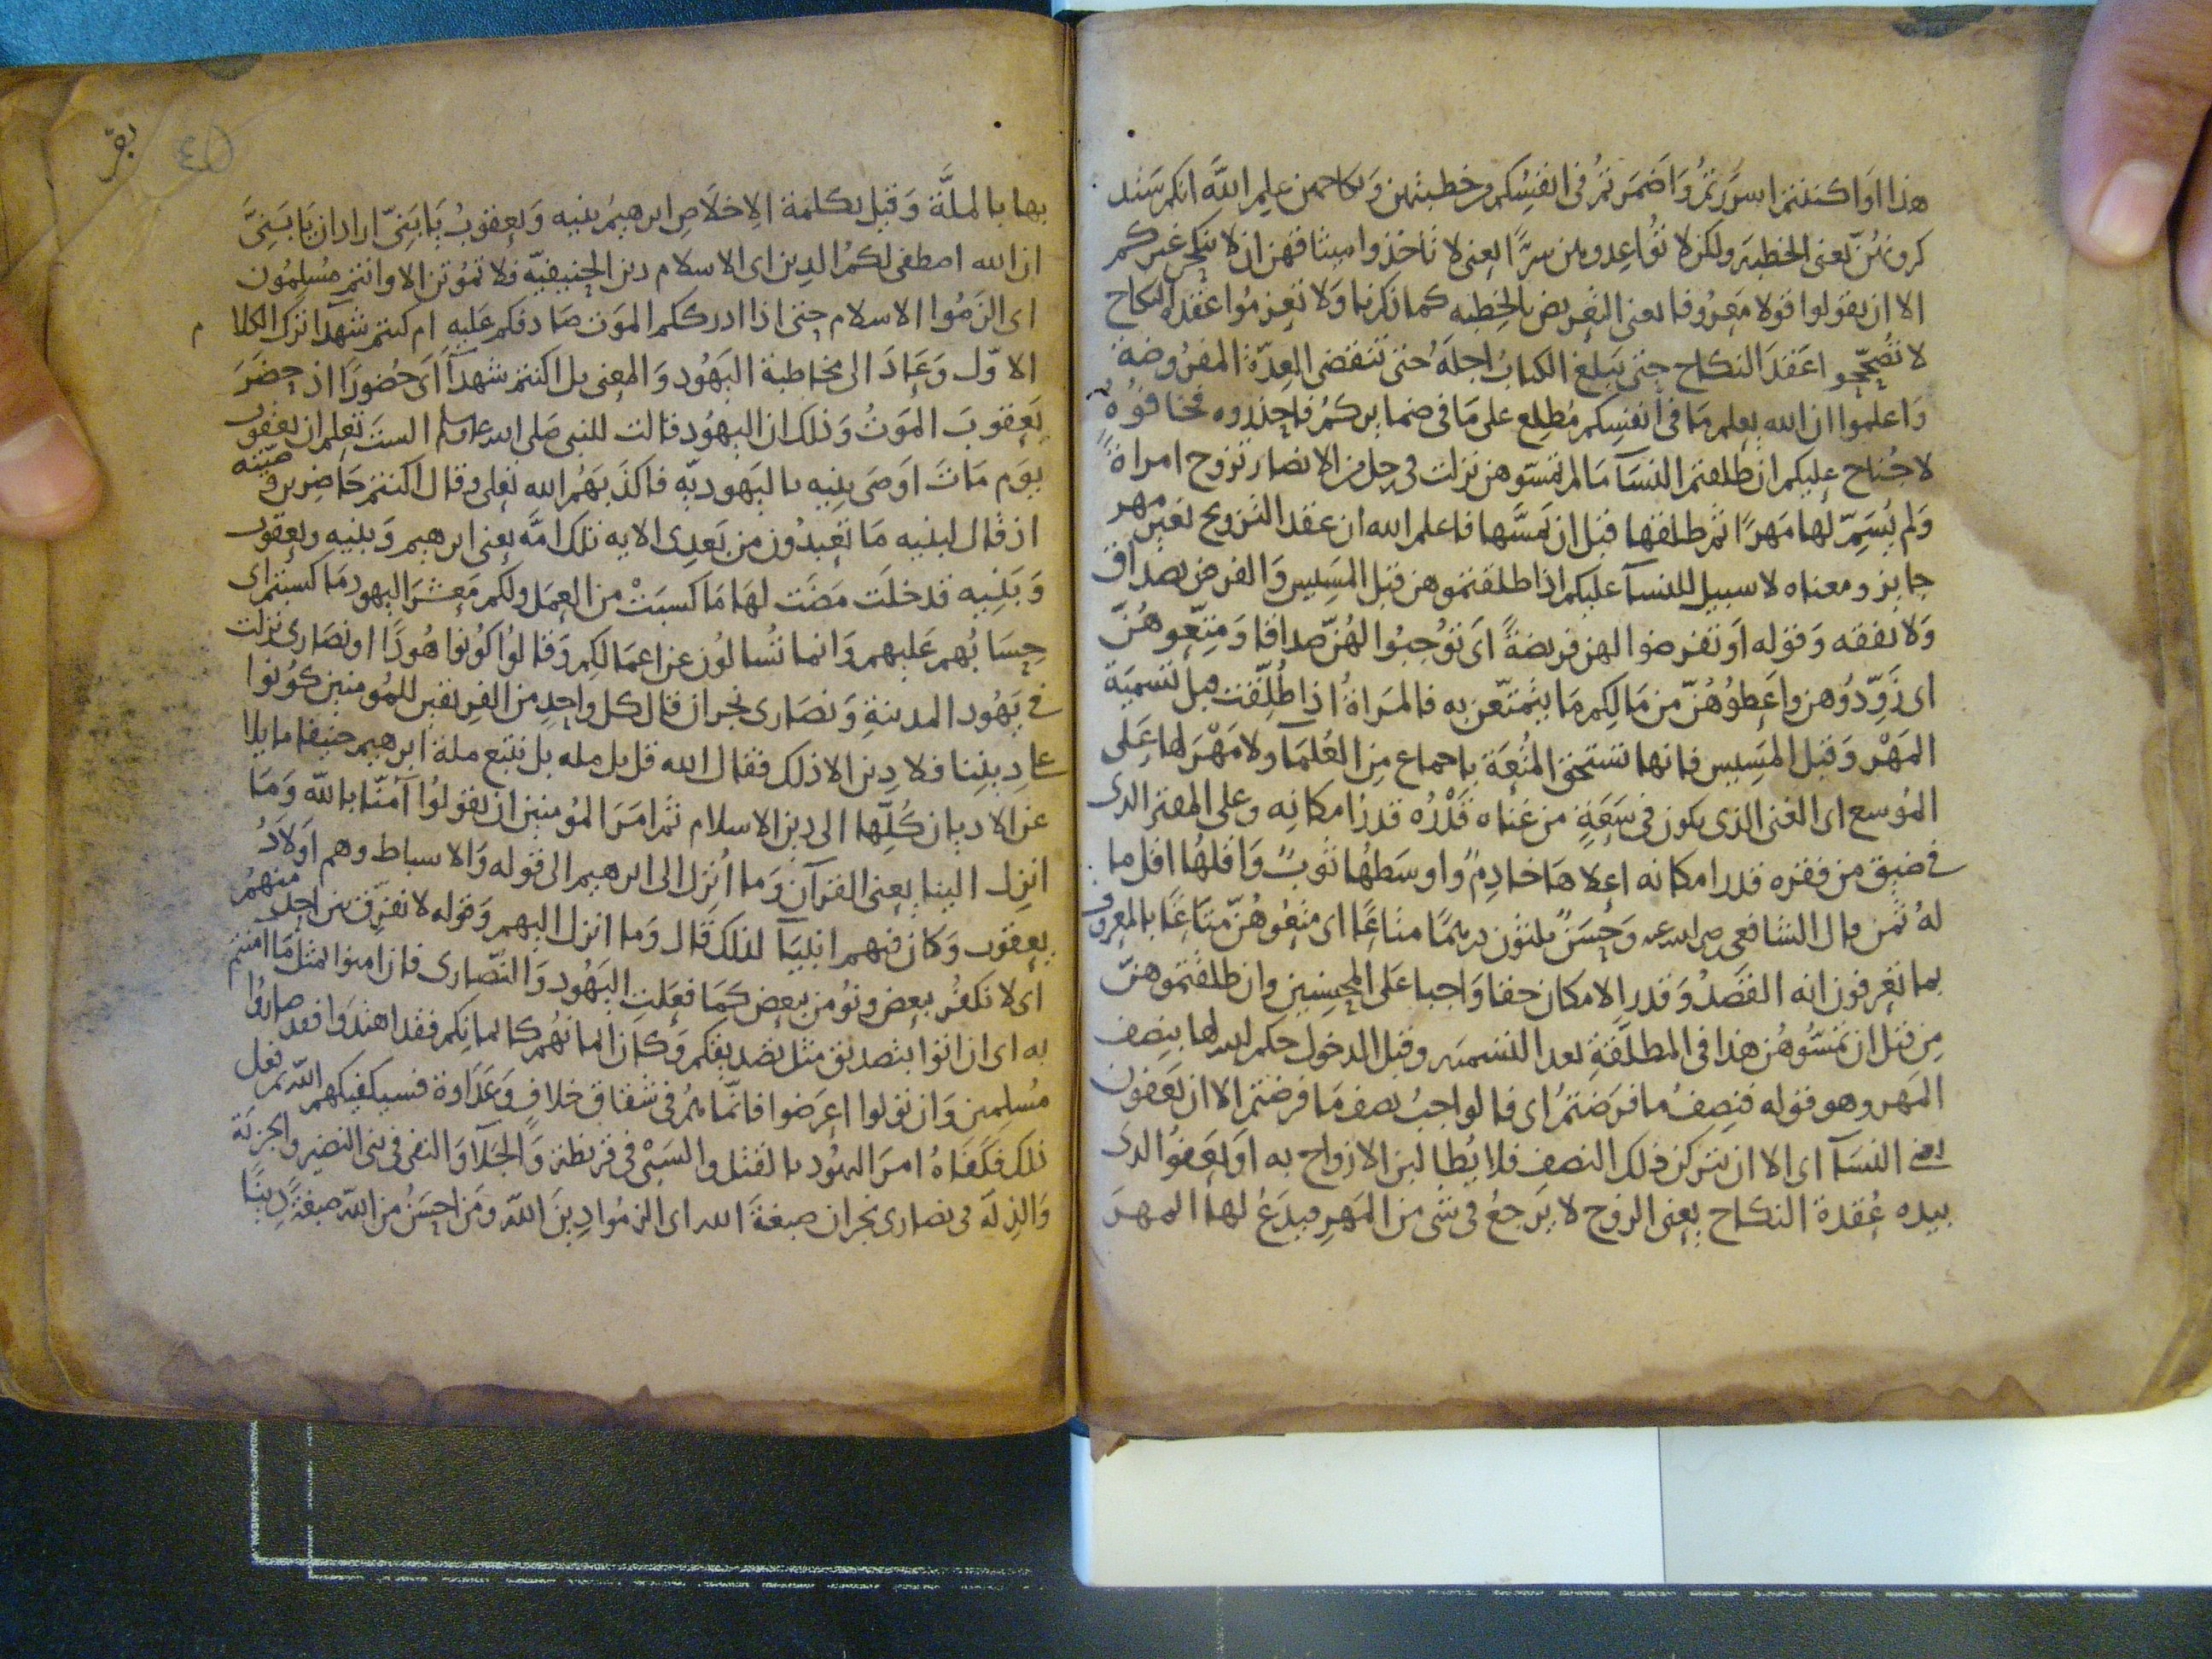 هذا او اكننتم اسررتم واضمرتم فى انفسكم من خطبتهن ونكاحهن علم الله انكم ستذ
كرونهن يعنى الخطبة ولكن لا تواعدوهن سرا يعنى لا تاخذوا ميثاقهن ان لا ينكحن غيركم
الا ان تقولوا قولا معروفا يعنى التعريض بالخطبه كما ذكرنا ولا تعزموا عقدة النكاح
لا تصححوا عقد النكاح حتى يبلغ الكتاب اجله حتى تنقضى العدة المفروضة
واعلموا ان الله يعلم ما فى انفسكم مطلع على ما فى ضمايركم فاحذروه فخافوه
لا جناح عليكم ان طلقتم النسآ ما لم تمسوهن نزلت فى رجل من الانصار تزوج امراة
ولم يسم لها مهرا ثم طلقها قبل ان يمسها فاعلم الله ان عقد التزويج بغير مهر
جايز ومعناه لا سبيل للنسآ عليكم اذا طلقتموهن قبل المسيس والفرض بصداق
ولا نفقه وقوله او تفرضوا لهن فريضة اى توجبوا لهن صداقا ومتعوهن
اى زودوهن واعطوهن من مالكم ما يتمتعن به فالمراة اذا طلقت قبل تسمية
المهر وقبل المسيس فانها تستحق المتعة باجماع من العلما ولا مهر لها على
الموسع اى الغنى الذى يكون فى سعة من غناه قدره قدر امكانه وعلى المقتر الذى
فى ضيق من فقره قدر امكانه اعلاها خادم واوسطها ثوب واقلها اقل ما
له ثمن قال الشافعى رضى الله عنه وحسن ثلثون درهما متاعا اى متعوهن متاعا بالمعروف
بما تعرفون انه القصد وقدر الامكان حقا واجبا على المحسنين وان طلقتموهن
من قبل ان تمسوهن هذا فى المطلقة بعد التسميه وقبل الدخول حكم الله لها بنصف
المهر وهو قوله فنصف ما فرضتم اى فالواجب نصف ما فرضتم الا ان يعفون
يعنى النسآ اى الا ان يتركن ذلك النصف فلا يطالبن الازواج به او يعفوا الذى
بيده عقدة النكاح يعنى الزوج لا يرجع فى شى من المهر فيدع لها المهر
بقر
بها بالملة وقيل بكلمة الاخلاص ابرهيم بنيه ويعقوب يا بنى اراد ان يا بنى
ان الله اصطفى لكم الدين اى الاسلام دين الحنيفيه فلا تموتن الا وانتم مسلمون
اى الزموا الاسلام حتى اذا ادرككم الموت صادفكم عليه ام كنتم شهدآ ترك الكلام
الاول وعاد الى مخاطبة اليهود والمعنى بل اكنتم شهدآ اى حضورا اذ حضر
يعقوب الموت وذلك ان اليهود قالت للنبى صلى الله عليه وسلم الست تعلم ان يعقوب
يوم مات اوصى بنيه باليهوديه فاكذبهم الله تعلى وقال اكنتم حاضرين وصيته
اذ قال لبنيه ما تعبدون من بعدى الايه تلك امة يعنى ابرهيم وبنيه ويعقوب
وبنيه قد خلت مضت لها ما كسبت من العمل ولكم معشر اليهود ما كسبتم اى
حسابهم عليهم وانما تسالون عن اعمالكم وقالوا كونوا هودا او نصارى نزلت
فى يهود المدينة ونصارى نجران قال كل واحد من الفريقين للمومنين كونوا
على ديننا فلا دين الا ذلك فقال الله قل بل مله بل نتبع ملة ابرهيم حنيفا مايلا
عن الاديان كلها الى دين الاسلام ثم امر المومنين ان يقولوا آمنا بالله وما
انزل الينا يعنى القرآن وما انزل الى ابرهيم الى قوله والاسباط وهم اولاد
يعقوب وكان فيهم انبيآ لذلك قال وما انزل اليهم وقوله لا نفرق بين احد منهم
اى لا نكفر ببعض ونومن ببعض كما فعلت اليهود والنصارى فان امنوا بمثل ما آمنتم
به اى ان اتوا بتصديق مثل تصديقكم وكان ايمانهم كايمانكم فقد اهتدوا فقد صاروا
مسلمين وان تولوا اعرضوا فانما هم فى شقاق خلاف وعداوة فسيكفيكهم الله ثم فعل
ذلك فكفاه امر اليهود بالقتل والسبى فى قريظة والجلآ والنفى فى بنى النضير والجزية
والذلة فى نصارى نجران صبغة الله اى الزموا دين الله ومن احسن من الله صبغة دينا